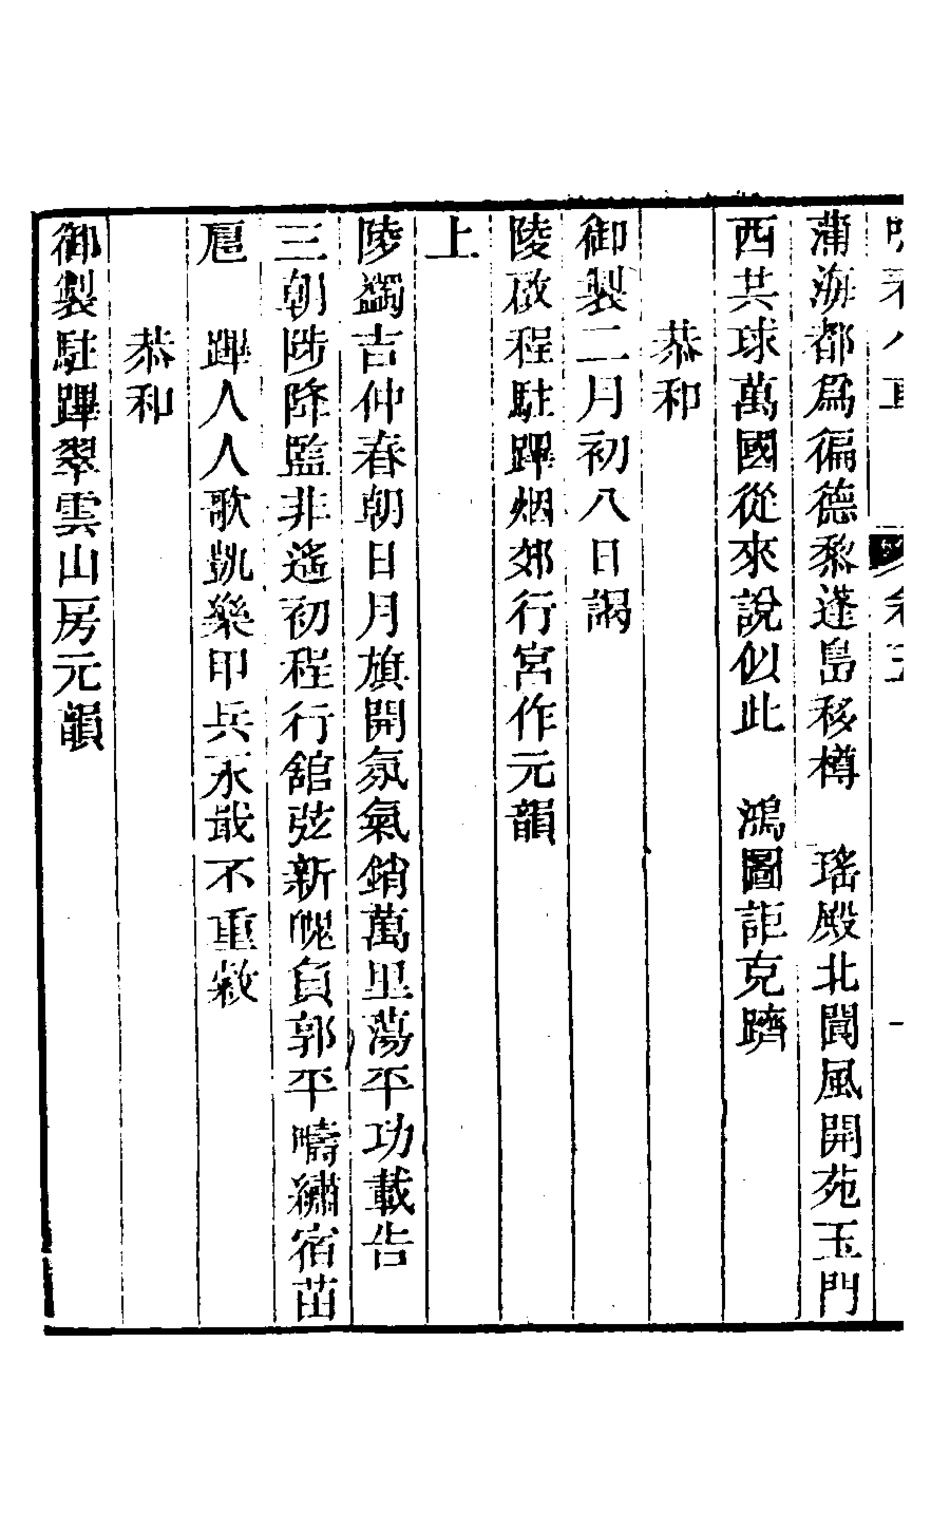 蒲海都爲徧德黎蓬島移樽　瑤殿北閬風開苑玉門
西共球萬國從來說似此　鴻圖詎克躋
恭和
御製二月初八日謁
陵啟程駐蹕烟郊行宮作元韻
上
陵蠲吉仲春朝日月旗開氛氣銷萬里蕩平功載告
三朝陟降監非遙初程行舘弦新魄負郭平疇繡宿苗
扈　蹕人人歌凱樂甲兵永戢不重敹
恭和
御製駐蹕翠雲山房元韻